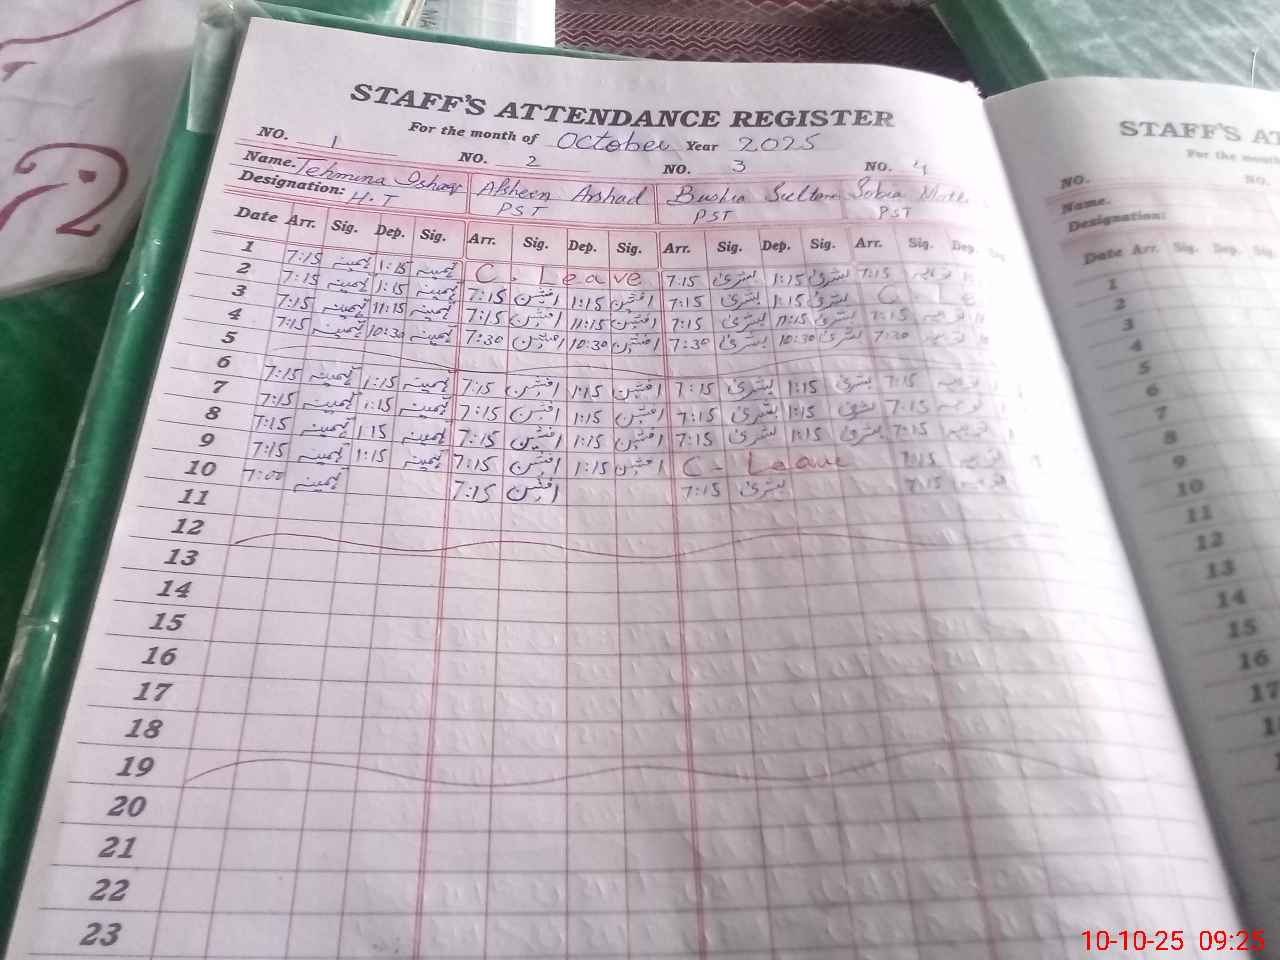 STAFF'S ATTENDANCE REGISTER
For the month of October Year 2025
NO. 1 NO. 2 NO. 3 NO. 4
Name. Tehmina Ishaq Afsheen Arshad Bushra Sultan Sobia
Designation: H.T PST PST PST
Date Arr. Sig. Dep. Sig. Arr. Sig. Dep. Sig. Arr. Sig. Dep. Sig. Arr. Sig. Dep.
1 7:15 تہمینہ 1:15 تہمینہ C. Leave 7:15 بشریٰ 1:15 بشریٰ 7:15
2 7:15 تہمینہ 1:15 تہمینہ 7:15 افشین 1:15 افشین 7:15 بشریٰ 1:15 بشریٰ C. Le
3 7:15 تہمینہ 11:15 تہمینہ 7:15 افشین 11:15 افشین 7:15 بشریٰ 11:15 بشریٰ 7:15
4 7:15 تہمینہ 10:30 تہمینہ 7:30 افشین 10:30 افشین 7:30 بشریٰ 10:30 بشریٰ 7:30
5
6 7:15 تہمینہ 1:15 تہمینہ 7:15 افشین 1:15 افشین 7:15 بشریٰ 1:15 بشریٰ 7:15
7 7:15 تہمینہ 1:15 تہمینہ 7:15 افشین 1:15 افشین 7:15 بشریٰ 1:15 بشریٰ 7:15
8 7:15 تہمینہ 1:15 تہمینہ 7:15 افشین 1:15 افشین 7:15 بشریٰ 1:15 بشریٰ 7:15
9 7:15 تہمینہ 1:15 تہمینہ 7:15 افشین 1:15 افشین C. Leave 7:15
10 7:00 تہمینہ 7:15 افشین 7:15 بشریٰ 7:15
11
12
13
14
15
16
17
18
19
20
21
22
23
STAFF'S AT
For the month
NO. NO.
Name.
Designation:
Date Arr. Sig. Dep. Sig.
1
2
3
4
5
6
7
8
9
10
11
12
13
14
15
16
17
10-10-25 09:25